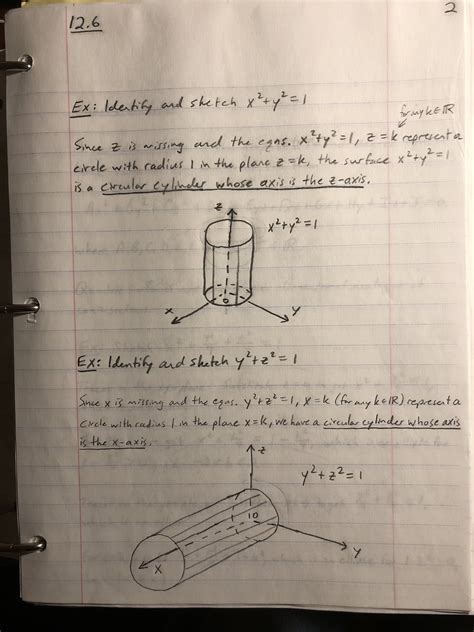 2
12.6
Ex: Identify and sketch x²+y²=1
for any k∈ℝ
Since z is missing and the eqns. x²+y²=1, z=k represent a
circle with radius 1 in the plane z=k, the surface x²+y²=1
is a circular cylinder whose axis is the z-axis.
z
x²+y²=1
0
x
y
Ex: Identify and sketch y²+z²=1
Since x is missing and the eqns. y²+z²=1, x=k (for any k∈ℝ) represent a
circle with radius 1 in the plane x=k, we have a circular cylinder whose axis
is the x-axis.
z
y²+z²=1
10
y
x